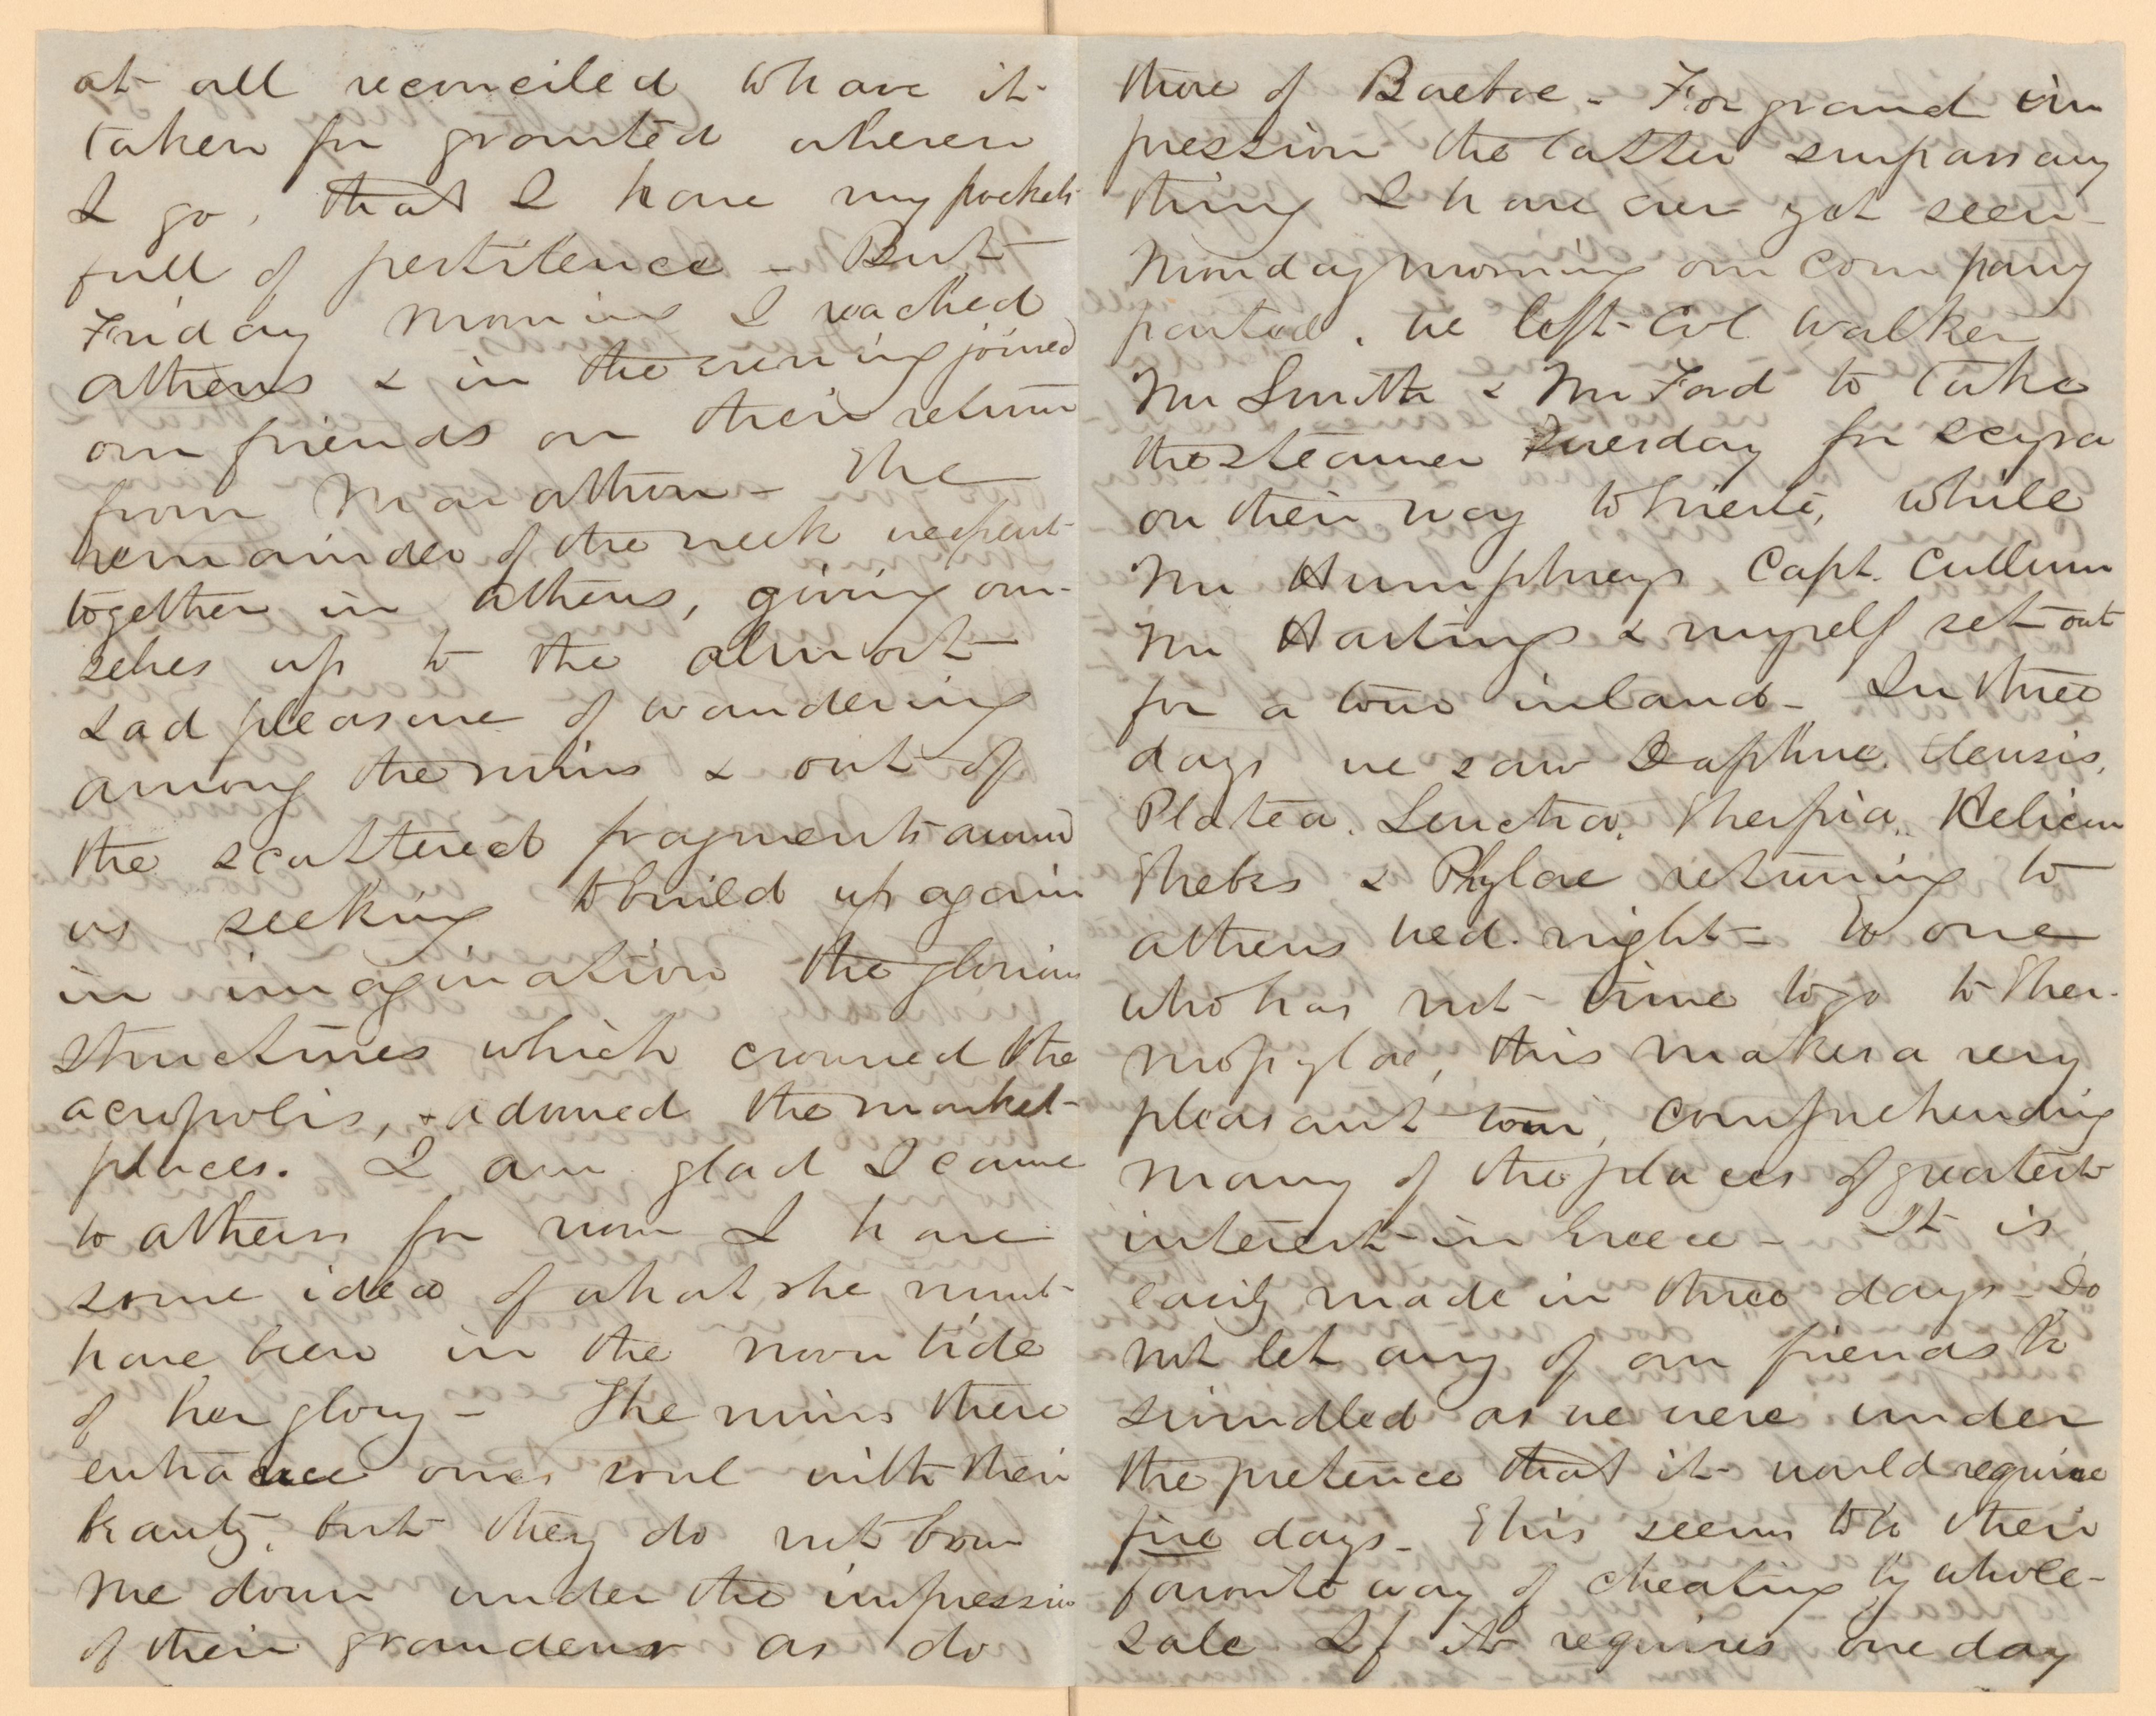 at all reconciled to have it
taken for granted wherever
I go, that I have my pockets
full of pestilence - But
Friday morning I reached
Athens & in the evening joined
our friends on their return
from Marathon - The
remainder of the week we spent
together in Athens, giving our-
selves up to the almost
sad pleasure of wandering
among the ruins & out of
the scattered fragments around
us seeking to build up again
in imagination the glorious
structures which crowned the
acropolis, & adorned the market-
places. I am glad I came
to Athens for now I have
some idea of what she must
have been in the noon tide
of her glory - The ruins there
entrance ones soul with their
beauty, but they do not bow
me down under the impression
of their grandeur as do
those of Baebec - For grand im
pression the latter surpass any
thing I have ever yet seen -
Monday morning our company
parted. We left Col. Walker
Mr Smith & Mr Ford to take
the steamer Tuesday for Scyra
on their way to Trieste, while
Mr Humphreys Capt. Cullum
Mr Hastings & myself set out
for a tour inland - In three
days we saw Daphne, Eleusis,
Platea, Leuctra, Thespia, Helicon
Thebes & Phylae returning to
Athens Wed. night - To one
who has not time to go to Ther-
mopylae, this makes a very
pleasant tour, comprehending
many of the places of greatest
interest in Greece - It is
easily made in three days - Do
not let any of our friends be
swindled as we were under
the pretence that it would require
five days - This seems to be their
favorite way of cheating by whole-
sale If it requires one day